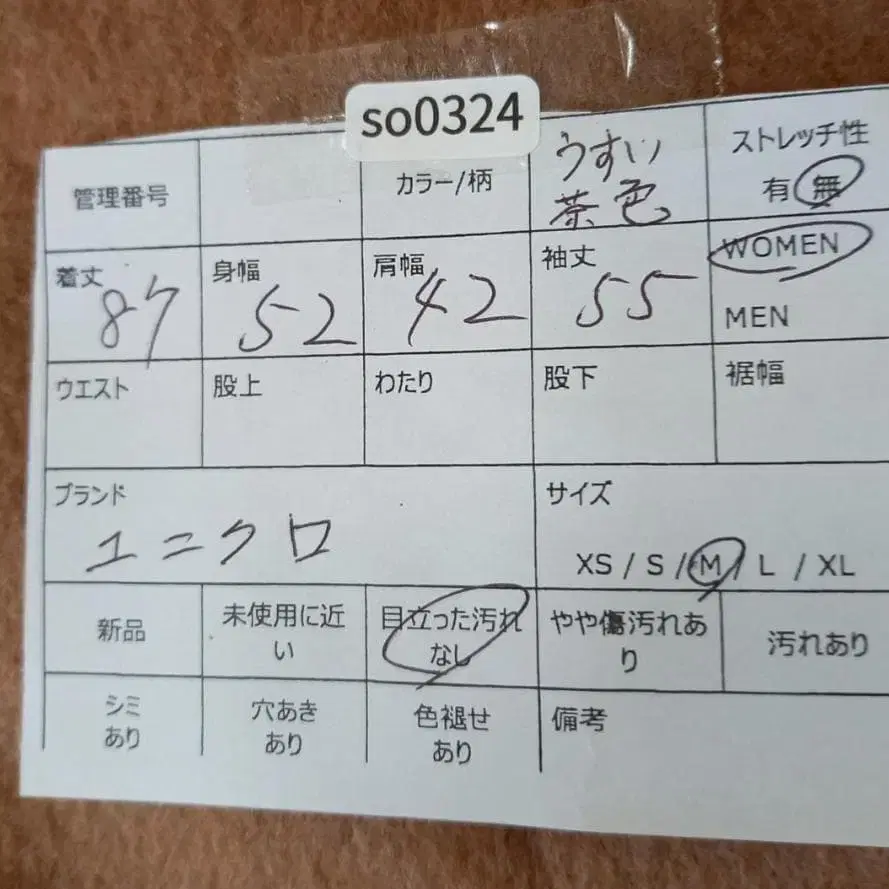 so0324
管理番号
カラー/柄
うすい
茶色
ストレッチ性
有 無
着丈
87
身幅
52
肩幅
42
袖丈
55
WOMEN
MEN
ウエスト
股上
わたり
股下
裾幅
ブランド
ユニクロ
サイズ
XS / S / M / L / XL
新品
未使用に近
い
目立った汚れ
なし
やや傷汚れあ
り
汚れあり
シミ
あり
穴あき
あり
色褪せ
あり
備考